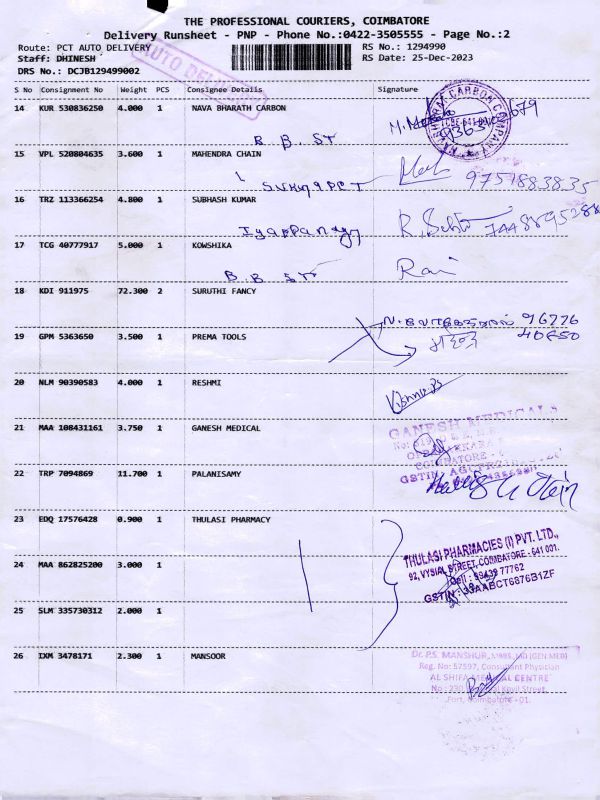 THE PROFESSIONAL COURIERS, COIMBATORE
Delivery Runsheet - PNP - Phone No.:0422-3505555 - Page No.:2
Route: PCT AUTO DELIVERY
RS No.: 1294990
Staff: DHINESH
RS Date: 25-Dec-2023
DRS No.: DCJB129499002
AUTO DEL
S No Consignment No Weight PCS Consignee Details Signature
14 KUR 530836250 4.000 1 NAVA BHARATH CARBON
B. B. ST
15 VPL 520804635 3.600 1 MAHENDRA CHAIN
9751883835
16 TRZ 113366254 4.800 1 SUBHASH KUMAR
17 TCG 40777917 5.000 1 KOWSHIKA
B. B ST
Rani
18 KDI 911975 72.300 2 SURUTHI FANCY
96776
19 GPM 5363650 3.500 1 PREMA TOOLS
20 NLM 90390583 4.000 1 RESHMI
21 MAA 108431161 3.750 1 GANESH MEDICAL
GANESH MEDICALS
COIMBATORE -
22 TRP 7094869 11.700 1 PALANISAMY
23 EDQ 17576428 0.900 1 THULASI PHARMACY
THULASI PHARMACIES (I) PVT. LTD.,
92, VYSIAL STREET, COIMBATORE - 641 001.
Cell : 99439 77762
GSTIN : 33AABCT6876B1ZF
24 MAA 862825200 3.000 1
25 SLM 335730312 2.000 1
26 IXM 3478171 2.300 1 MANSOOR
Dr. P.S. MANSHUR, MBBS, MD (GEN.MED)
Reg. No: 57597, Consultant Physician
AL SHIFA MEDICAL CENTRE
Fort, Coimbatore - 01.